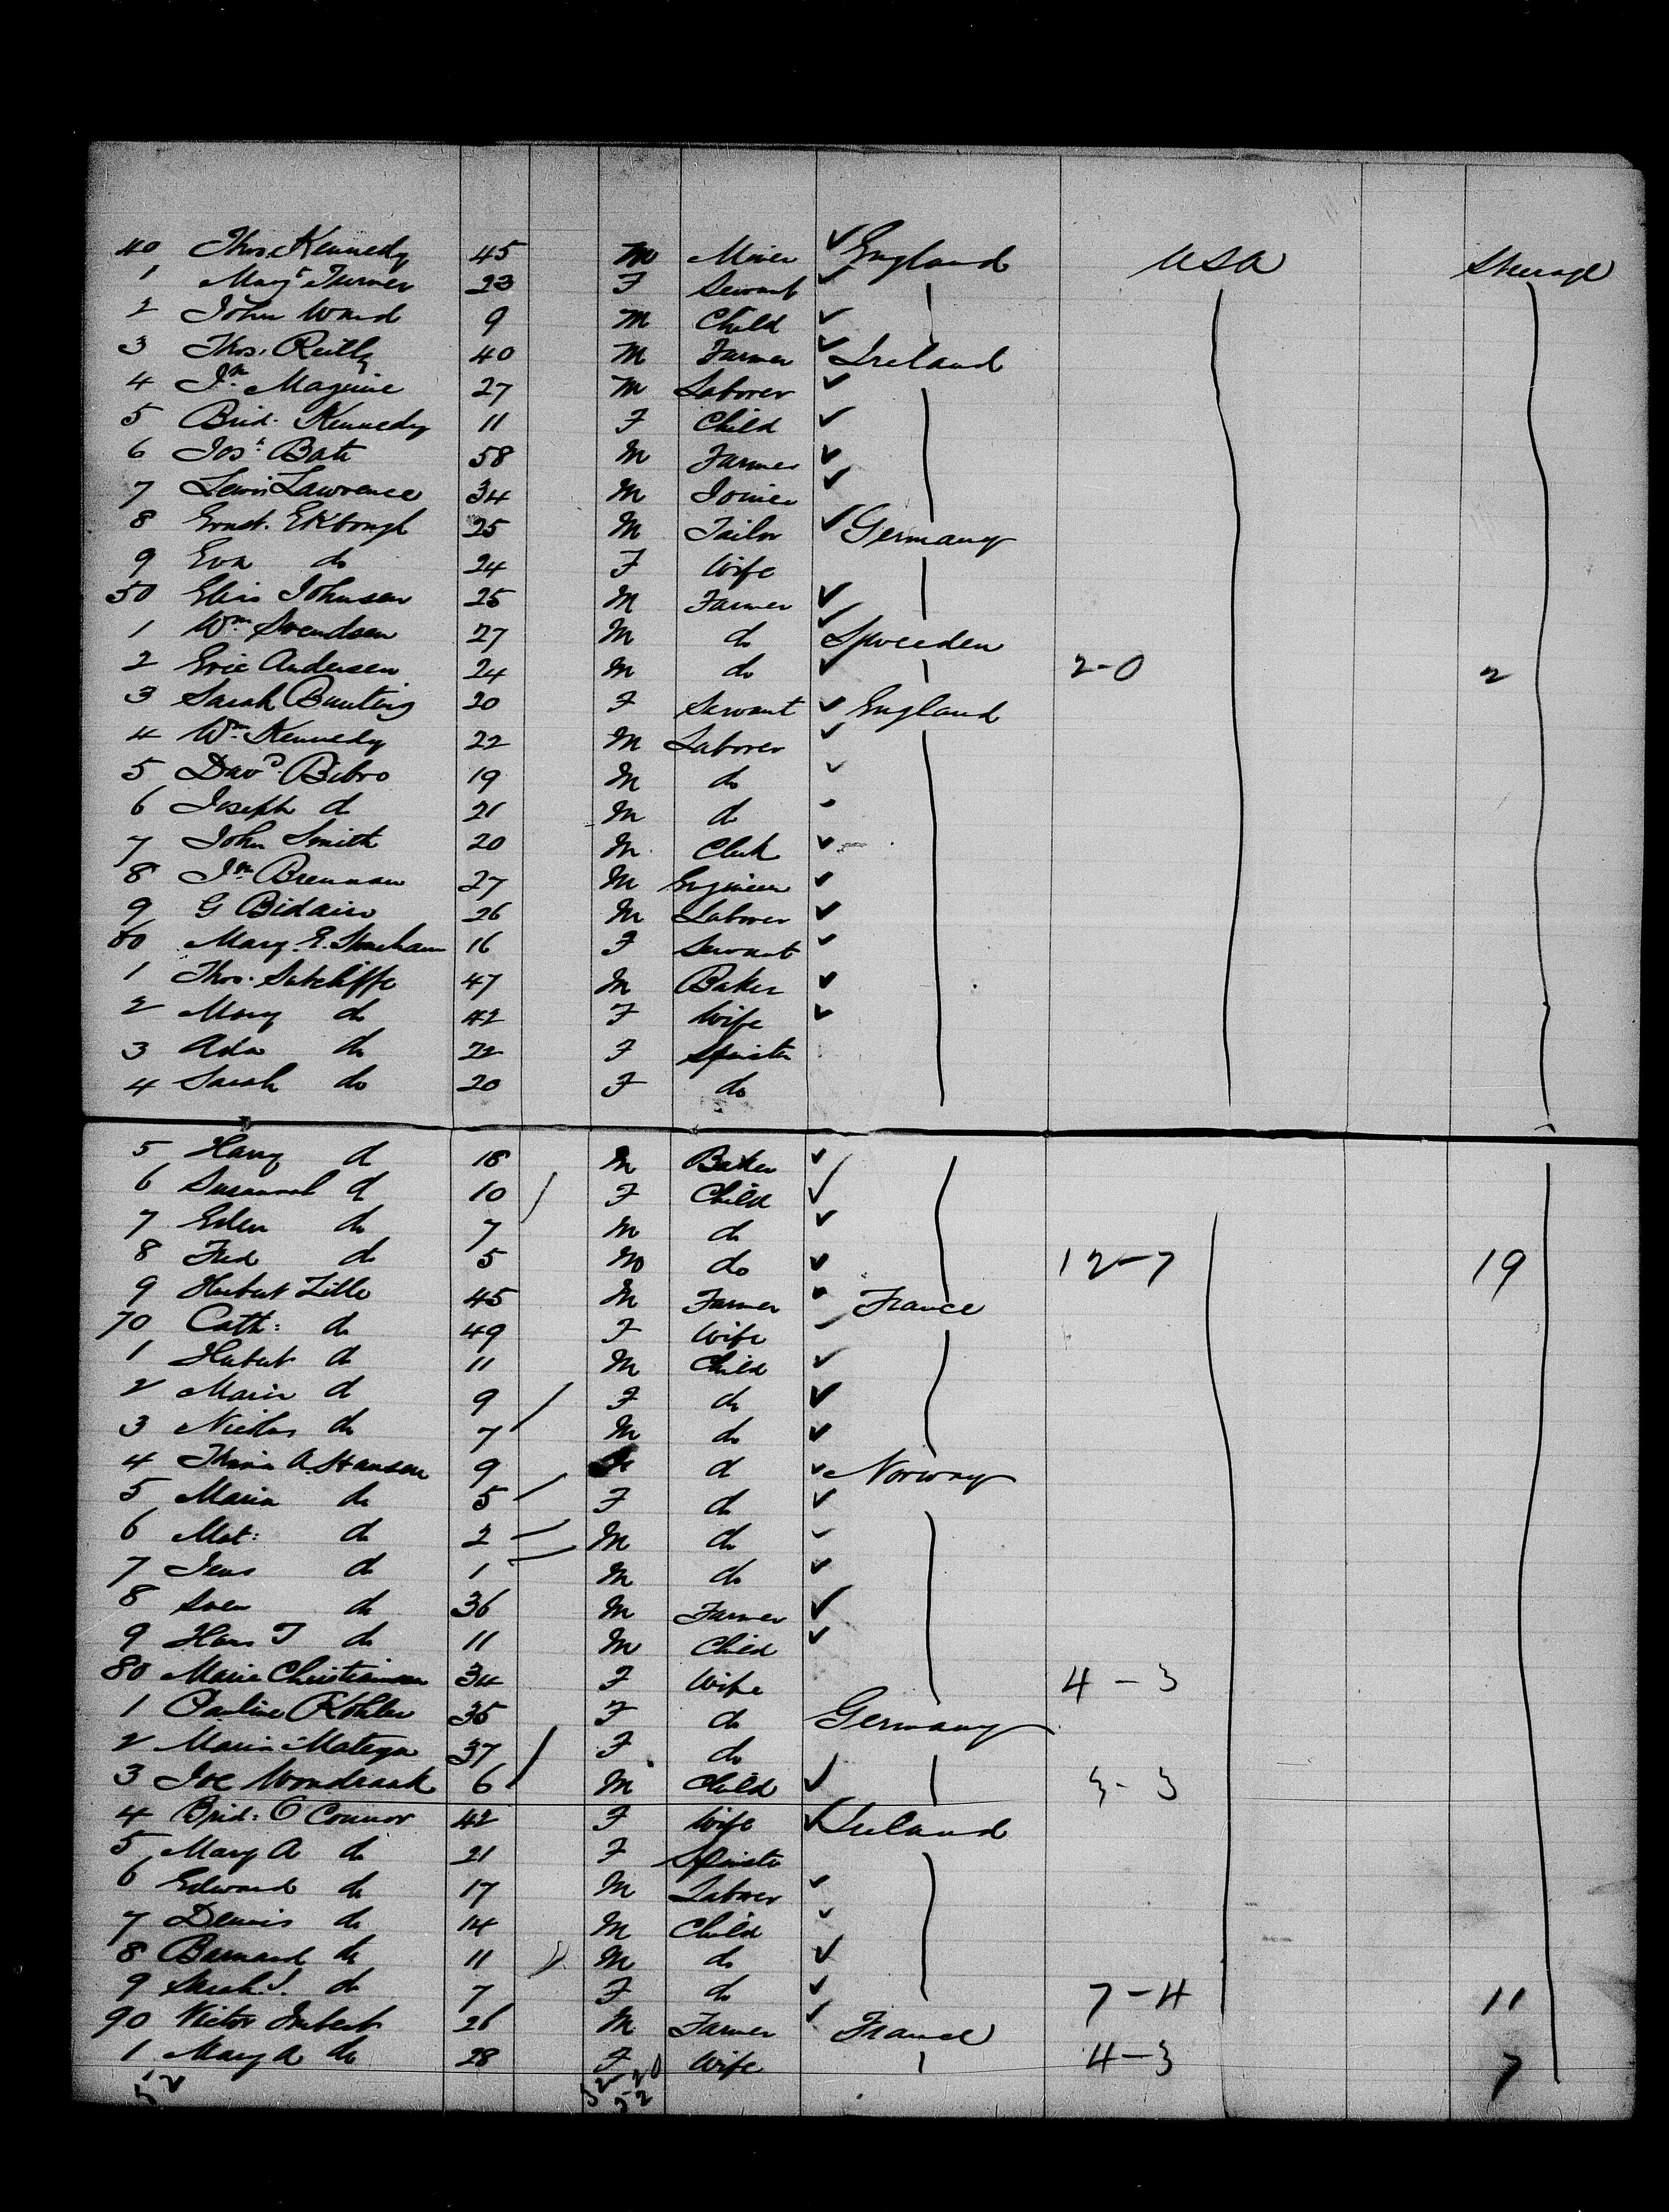 40 Thos. Kennedy 45 M Miner ✓ England USA Steerage
1 Margt Turner 23 F Servant ✓
2 John Ward 9 M Child ✓
3 Thos. Reilly 40 M Farmer ✓ Ireland
4 Jn Maguire 27 M Laborer ✓
5 Brid. Kennedy 11 F Child ✓
6 Josh Bate 58 M Farmer ✓
7 Lewis Lawrence 34 M Joiner ✓
8 Ernst. 25 M Tailor ✓ Germany
9 Eva do 24 F Wife
50 Johnsen 25 M Farmer ✓
1 Wm Svendsen 27 M do ✓ Sweeden
2 Eric Andersen 24 M do ✓ 2-0 2
3 Sarah Bunting 20 F Servant ✓ England
4 Wm Kennedy 22 M Laborer ✓
5 Davd. Bibro 19 M do ✓
6 Joseph do 21 M do
7 John Smith 20 M Clerk ✓
8 Jn Brennan 27 M Engineer ✓
9 G 26 M Laborer ✓
60 Mary. E. 16 F Servant ✓
1 Thos. Sutcliffe 47 M Baker ✓
2 Mary do 42 F Wife ✓
3 Ada do 22 F Spinster
4 Sarah do 20 F do
5 Harry do 18 M Baker ✓
6 Susannah do 10 F Child ✓
7 Eden do 7 M do ✓
8 Fred do 5 M do ✓ 12-7 19
9 Hubert Zille 45 M Farmer France
70 Cath: do 49 F Wife
1 Hubert do 11 M Child ✓
2 Marie do 9 F do ✓
3 Nicolas do 7 M do ✓
4 A. Hansen 9 do ✓ Norway
5 Maria do 5 F do ✓
6 Mat: do 2 M do ✓
7 Jens do 1 M do ✓
8 Sven do 36 M Farmer ✓
9 Hans T do 11 M Child ✓
80 Marie Christiansen 34 F Wife 4-3
1 Pauline Kohler 35 F do Germany
2 Maria 37 F do
3 Joe 6 M Child ✓ 3-3
4 Brid: O Connor 42 F Wife ✓ Ireland
5 Mary A do 21 F Spinster
6 Edward do 17 M Laborer ✓
7 Dennis do 14 M Child ✓
8 Barnard do 11 M do ✓
9 Sarah J. do 7 F do ✓ 7-4 11
90 Victor 26 M Farmer ✓ France
1 Mary A do 28 F Wife 4-3 7
52 52